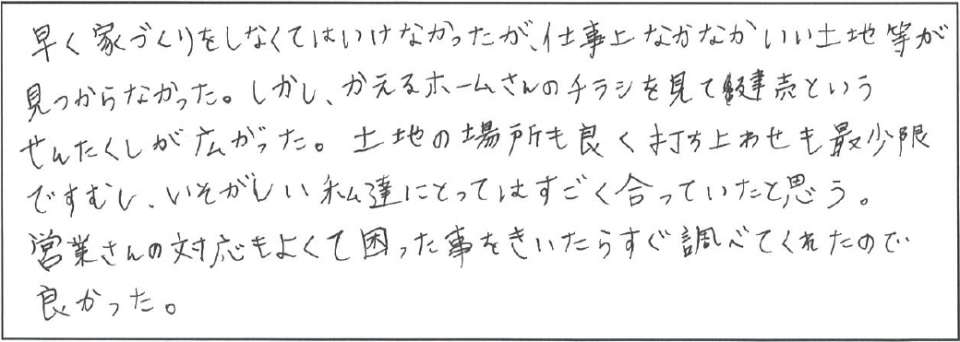 早く家づくりをしなくてはいけなかったが、仕事上なかなかいい土地等が
見つからなかった。しかし、かえるホームさんのチラシを見て建売という
せんたくしが広がった。土地の場所も良く打ち上わせも最少限
ですむし、いそがしい私達にとってはすごく合っていたと思う。
営業さんの対応もよくて困った事をきいたらすぐ調べてくれたので
良かった。